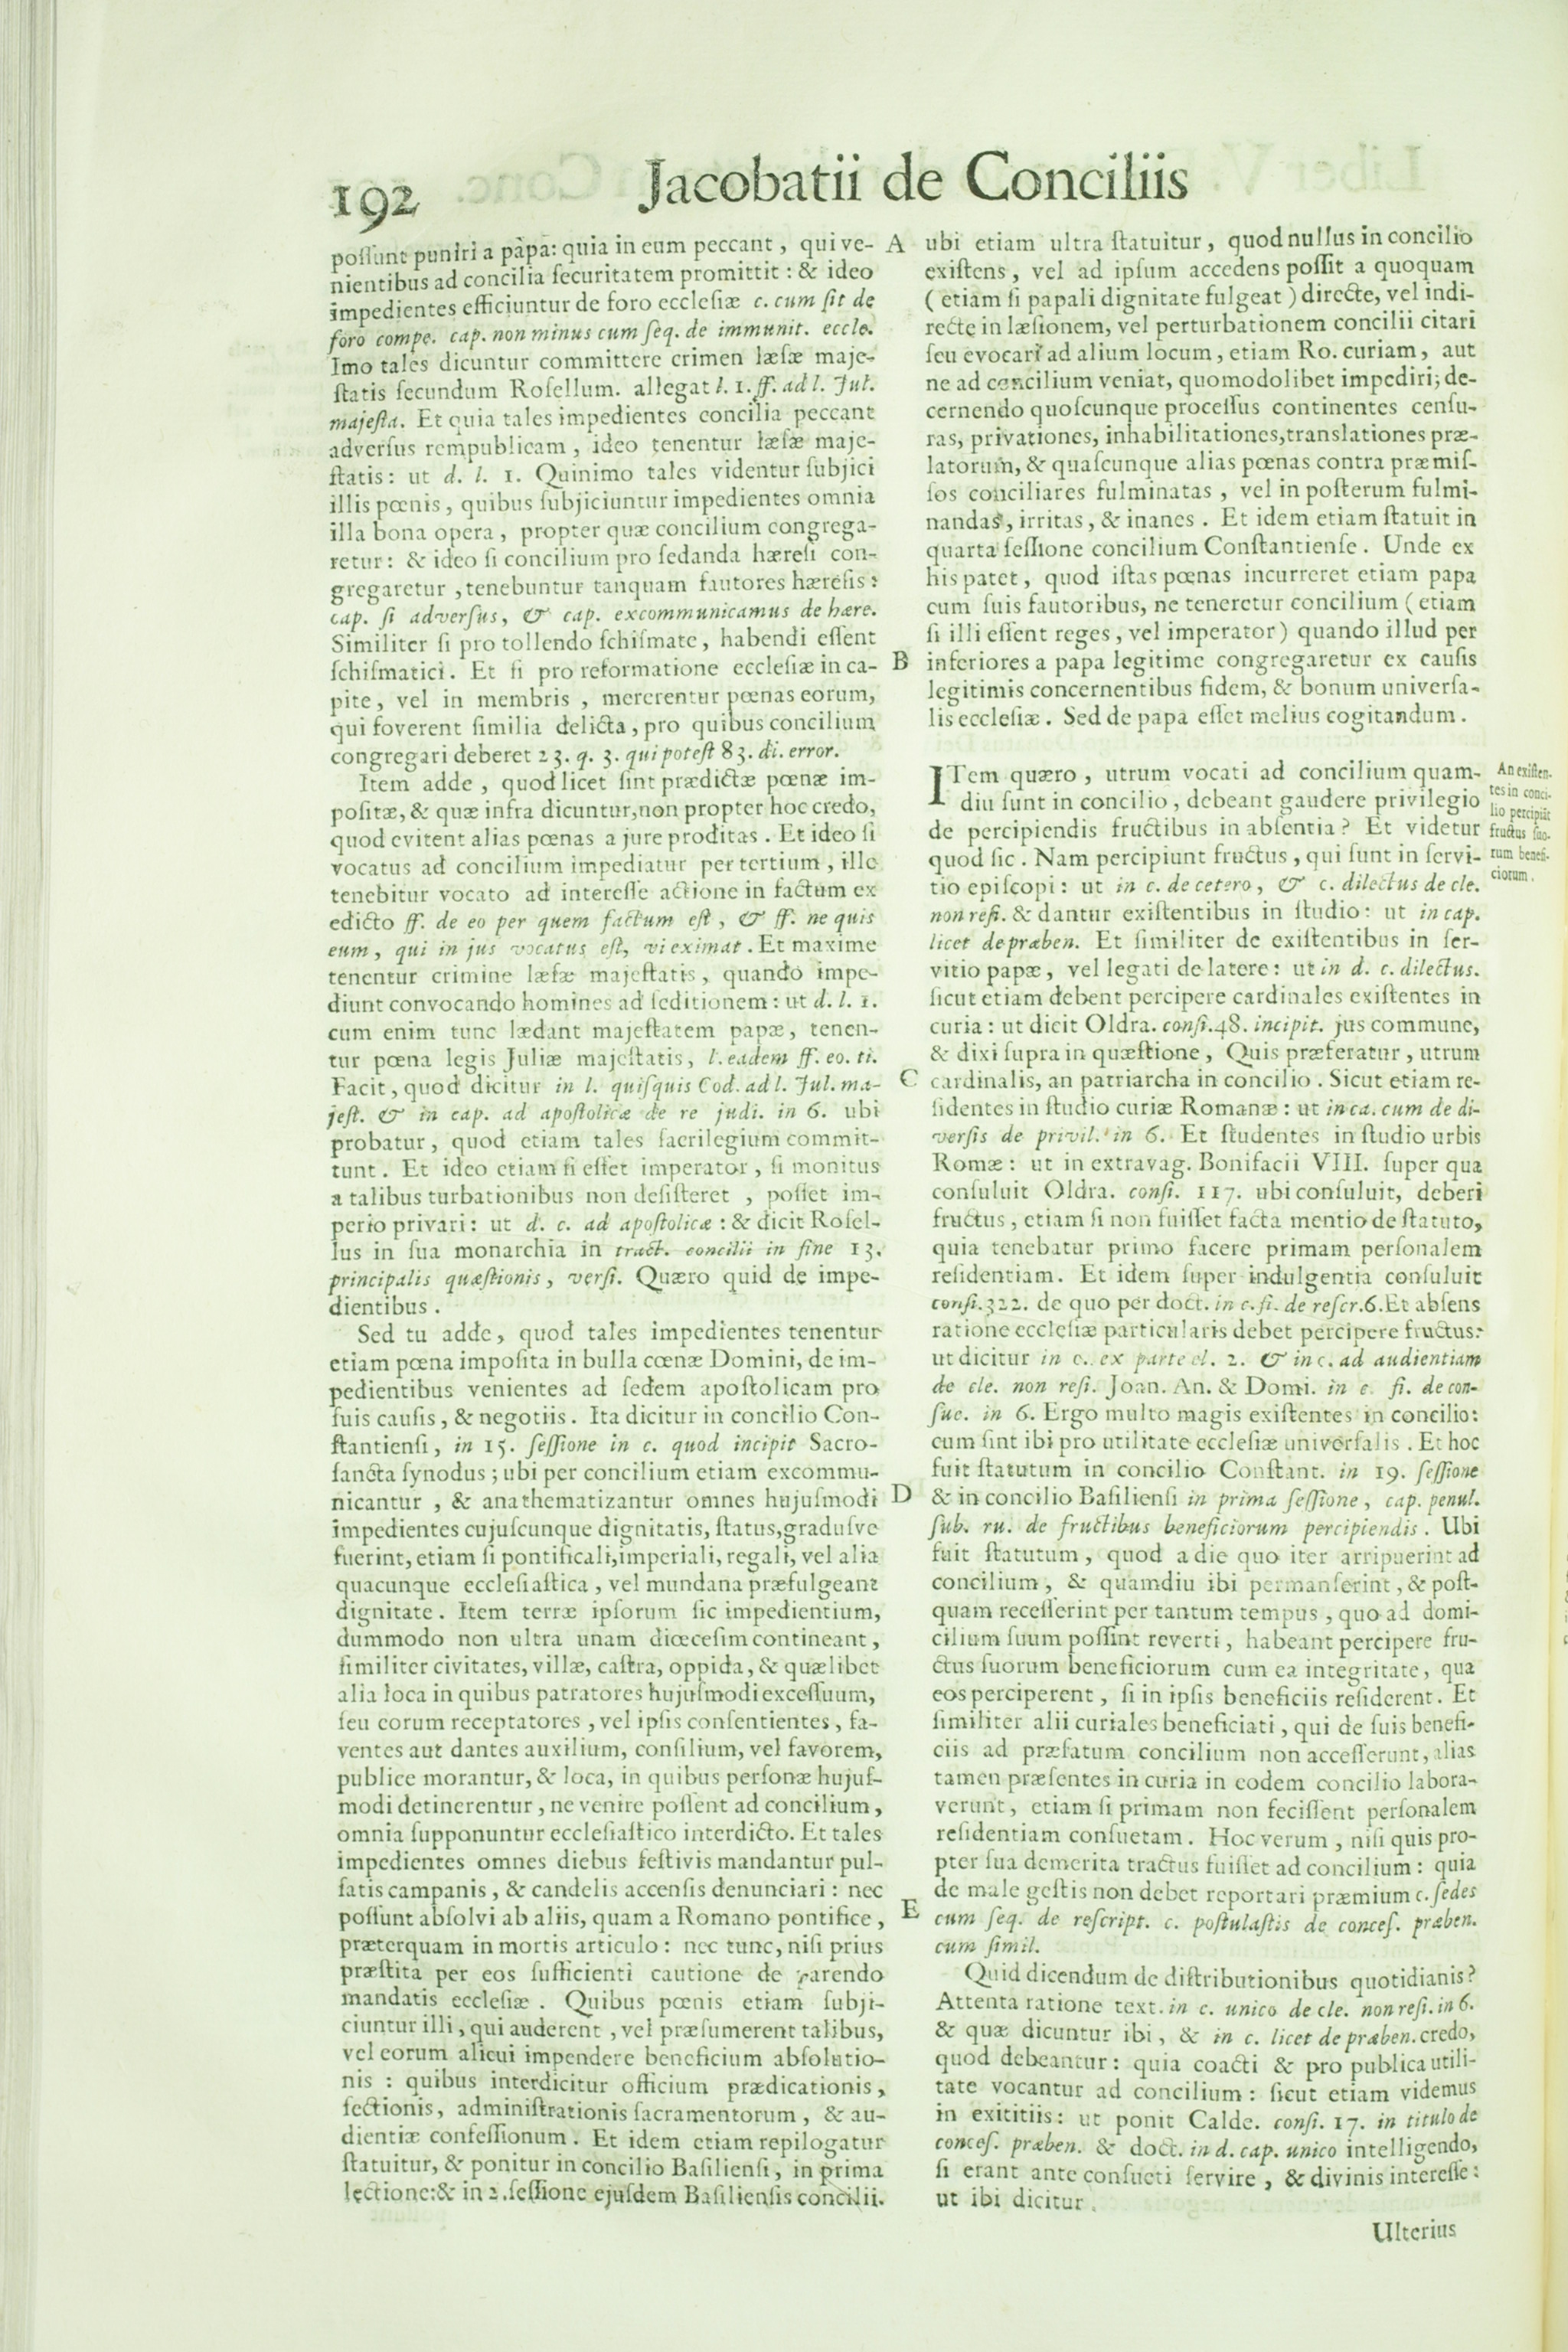 192
Jacobatii de Conciliis
possunt puniri a papa: quia in eum peccant, qui ve-
nientibus ad concilia securitatem promittit: & ideo
impedientes efficiuntur de foro ecclesiæ c. cum sit de
foro compe. cap. non minus cum seq. de immunit. eccle.
Imo tales dicuntur committere crimen læsæ maje-
statis secundum Rosellum. allegat l. 1. ff. ad l. Jul.
majesta. Et quia tales impedientes concilia peccant
adversus rempublicam, ideo tenentur læsæ maje-
statis: ut d. l. 1. Quinimo tales videntur subjici
illis pœnis, quibus subjiciuntur impedientes omnia
illa bona opera, propter quæ concilium congrega-
retur: & ideo si concilium pro sedanda hæresi con-
gregaretur, tenebuntur tanquam fautores hæresis:
cap. si adversus, & cap. excommunicamus de hære.
Similiter si pro tollendo schismate, habendi essent
schismatici. Et si pro reformatione ecclesiæ in ca-
pite, vel in membris, mererentur pœnas eorum,
qui foverent similia delicta, pro quibus concilium
congregari deberet 23. q. 3. qui potest 83. di. error.
Item adde, quod licet sint prædictæ pœnæ im-
positæ, & quæ infra dicuntur, non propter hoc credo,
quod evitent alias pœnas a jure proditas. Et ideo si
vocatus ad concilium impediatur per tertium, ille
tenebitur vocato ad interesse actione in factum ex
edicto ff. de eo per quem factum est, & ff. ne quis
eum, qui in jus vocatus est, vi eximat. Et maxime
tenentur crimine læsæ majestatis, quando impe-
diunt convocando homines ad seditionem: ut d. l. 1.
cum enim tunc lædant majestatem papæ, tenen-
tur pœna legis Juliæ majestatis, l. eadem ff. eo. ti.
Facit, quod dicitur in l. quisquis Cod. ad l. Jul. ma-
jest. & in cap. ad apostolicæ de re judi. in 6. ubi
probatur, quod etiam tales sacrilegium commit-
tunt. Et ideo etiam si esset imperator, si monitus
a talibus turbationibus non desisteret, posset im-
perio privari: ut d. c. ad apostolicæ: & dicit Rosel-
lus in sua monarchia in tract. concilii in fine 13.
principalis quæstionis, versi. Quæro quid de impe-
dientibus.
Sed tu adde, quod tales impedientes tenentur
etiam pœna imposita in bulla cœnæ Domini, de im-
pedientibus venientes ad sedem apostolicam pro
suis causis, & negotiis. Ita dicitur in concilio Con-
stantiensi, in 15. sessione in c. quod incipit Sacro-
sancta synodus; ubi per concilium etiam excommu-
nicantur, & anathematizantur omnes hujusmodi
impedientes cujuscunque dignitatis, status, gradusve
fuerint, etiam si pontificali, imperiali, regali, vel alia
quacunque ecclesiastica, vel mundana præfulgeant
dignitate. Item terræ ipsorum sic impedientium,
dummodo non ultra unam diœcesim contineant,
similiter civitates, villæ, castra, oppida, & quælibet
alia loca in quibus patratores hujusmodi excessuum,
seu eorum receptatores, vel ipsis consentientes, fa-
ventes aut dantes auxilium, consilium, vel favorem,
publice morantur, & loca, in quibus personæ hujus-
modi detinerentur, ne venire possent ad concilium,
omnia supponuntur ecclesiastico interdicto. Et tales
impedientes omnes diebus festivis mandantur pul-
satis campanis, & candelis accensis denunciari: nec
possunt absolvi ab aliis, quam a Romano pontifice,
præterquam in mortis articulo: nec tunc, nisi prius
præstita per eos sufficienti cautione de parendo
mandatis ecclesiæ. Quibus pœnis etiam subji-
ciuntur illi, qui auderent, vel præsumerent talibus,
vel eorum alicui impendere beneficium absolutio-
nis: quibus interdicitur officium prædicationis,
lectionis, administrationis sacramentorum, & au-
dientiæ confessionum. Et idem etiam repilogatur
statuitur, & ponitur in concilio Basiliensi, in prima
lectione: & in 2. sessione ejusdem Basiliensis concilii.
A
B
C
D
E
ubi etiam ultra statuitur, quod nullus in concilio
existens, vel ad ipsum accedens possit a quoquam
(etiam si papali dignitate fulgeat) directe, vel indi-
recte in læsionem, vel perturbationem concilii citari
seu evocari ad alium locum, etiam Ro. curiam, aut
ne ad concilium veniat, quomodolibet impediri; de-
cernendo quoscunque processus continentes censu-
ras, privationes, inhabilitationes, translationes præ-
latorum, & quascunque alias pœnas contra præmis-
sos conciliares fulminatas, vel in posterum fulmi-
nandas, irritas, & inanes. Et idem etiam statuit in
quarta sessione concilium Constantiense. Unde ex
his patet, quod istas pœnas incurreret etiam papa
cum suis fautoribus, ne teneretur concilium (etiam
si illi essent reges, vel imperator) quando illud per
inferiores a papa legitime congregaretur ex causis
legitimis concernentibus fidem, & bonum universa-
lis ecclesiæ. Sed de papa esset melius cogitandum.
ITem quæro, utrum vocati ad concilium quam-
diu sunt in concilio, debeant gaudere privilegio
de percipiendis fructibus in absentia? Et videtur
quod sic. Nam percipiunt fructus, qui sunt in servi-
tio episcopi: ut in c. de cetero, & c. dilectus de cle.
non resi. & dantur existentibus in studio: ut in cap.
licet de præben. Et similiter de existentibus in ser-
vitio papæ, vel legati de latere: ut in d. c. dilectus.
sicut etiam debent percipere cardinales existentes in
curia: ut dicit Oldra. consi. 48. incipit. jus commune,
& dixi supra in quæstione, Quis præferatur, utrum
cardinalis, an patriarcha in concilio. Sicut etiam re-
sidentes in studio curiæ Romanæ: ut in ca. cum de di-
versis de privil. in 6. Et studentes in studio urbis
Romæ: ut in extravag. Bonifacii VIII. super qua
consuluit Oldra. consi. 117. ubi consuluit, deberi
fructus, etiam si non fuisset facta mentio de statuto,
quia tenebatur primo facere primam personalem
residentiam. Et idem super indulgentia consuluit
consi. 322. de quo per doct. in c. fi. de rescr. 6. Et absens
ratione ecclesiæ particularis debet percipere fructus:
ut dicitur in c. ex parte el. 2. & in c. ad audientiam
de cle. non resi. Joan. An. & Domi. in c. fi. de con-
suc. in 6. Ergo multo magis existentes in concilio:
cum sint ibi pro utilitate ecclesiæ universalis. Et hoc
fuit statutum in concilio Constant. in 19. sessione
& in concilio Basiliensi in prima sessione, cap. penul.
sub. ru. de fructibus beneficiorum percipiendis. Ubi
fuit statutum, quod a die quo iter arripuerint ad
concilium, & quamdiu ibi permanserint, & post-
quam recesserint per tantum tempus, quo ad domi-
cilium suum possint reverti, habeant percipere fru-
ctus suorum beneficiorum cum ea integritate, qua
eos perciperent, si in ipsis beneficiis residerent. Et
similiter alii curiales beneficiati, qui de suis benefi-
ciis ad præfatum concilium non accesserunt, alias
tamen præsentes in curia in eodem concilio labora-
verunt, etiam si primam non fecissent personalem
residentiam consuetam. Hoc verum, nisi quis pro-
pter sua demerita tractus fuisset ad concilium: quia
de male gestis non debet reportari præmium c. sedes
cum seq. de rescript. c. postulastis de conces. præben.
cum simil.
Quid dicendum de distributionibus quotidianis?
Attenta ratione text. in c. unico de cle. non resi. in 6.
& quæ dicuntur ibi, & in c. licet de præben. credo,
quod debeantur: quia coacti & pro publica utili-
tate vocantur ad concilium: sicut etiam videmus
in exititiis: ut ponit Calde. consi. 17. in titulo de
conces. præben. & doct. in d. cap. unico intelligendo,
si erant ante consueti servire, & divinis interesse:
ut ibi dicitur.
An existen-
tes in conci-
lio percipiāt
fructus suo-
rum benefi-
ciorum.
Ulterius